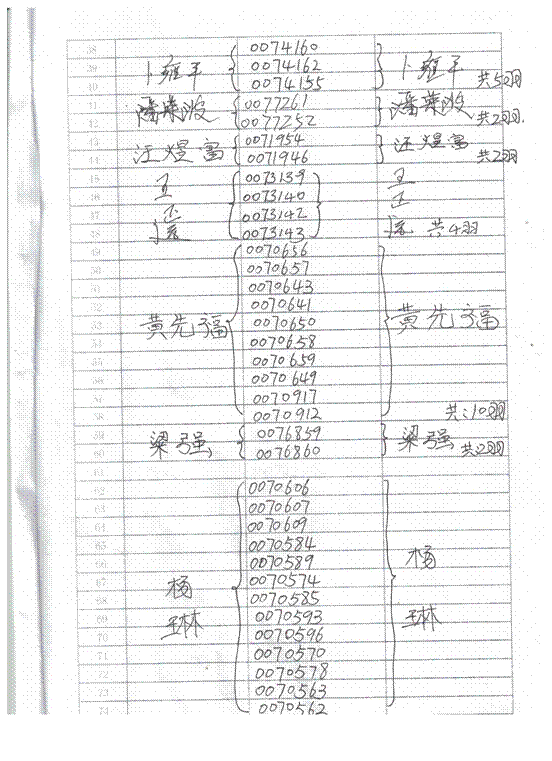 38 0074160
39 卜雍平 0074162 卜雍平
40 0074155 共5羽
41 潘葉波 0077261 潘葉波
42 0077252 共2羽.
43 汪煜富 0071954 汪煜富
44 0071946 共2羽
45 王 0073139 王
46 0073140
47 0073142
48 0073143 共4羽
49 0070656
50 0070657
51 0070643
52 0070641
53 黄先福 0070650 黄先福
54 0070658
55 0070659
56 0070649
57 0070917
58 0070912 共:10羽
59 梁强 0076859 梁强
60 0076860 共2羽
61
62 0070606
63 0070607
64 0070609
65 0070584
66 0070589 杨
67 杨 0070574
68 0070585
69 玉林 0070593 玉林
70 0070596
71 0070570
72 0070578
73 0070563
74 0070562